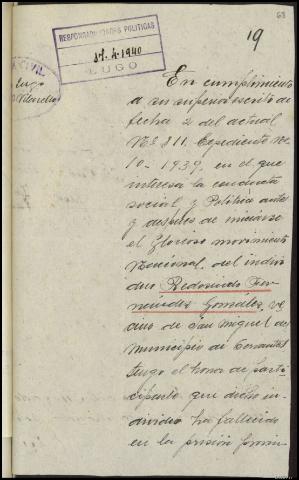 68
19
RESPONSABILIDADES POLITICAS
17.4.1940
LUGO
CIVIL
Lugo
En cumplimiento
a su superior escrito de
fecha 2 del actual
Nº 811, Expediente nº
10-1939, en el que
interesa la conducta
social y Politica antes
y despues de iniciarse
el Glorioso movimiento
Nacional, del indivi-
duo Redosindo Fer-
nández González, ve-
cino de San Miguel del
Municipio de Cervantes
tengo el honor de parti-
ciparle que dicho in-
dividuo ha fallecido
en la prisión provin-